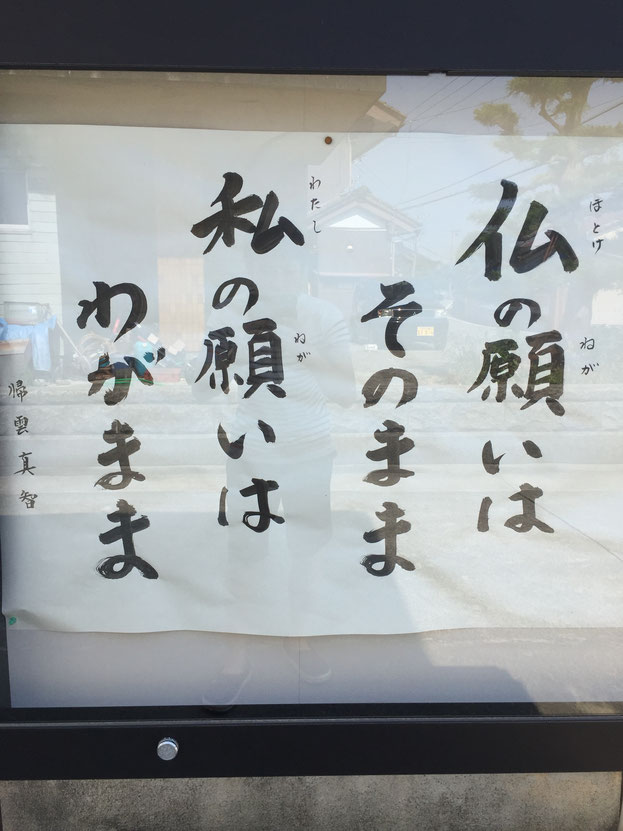 ほとけ ねが
仏の願いは
そのまま
わたし ねが
私の願いは
わがまま
帰雲真智